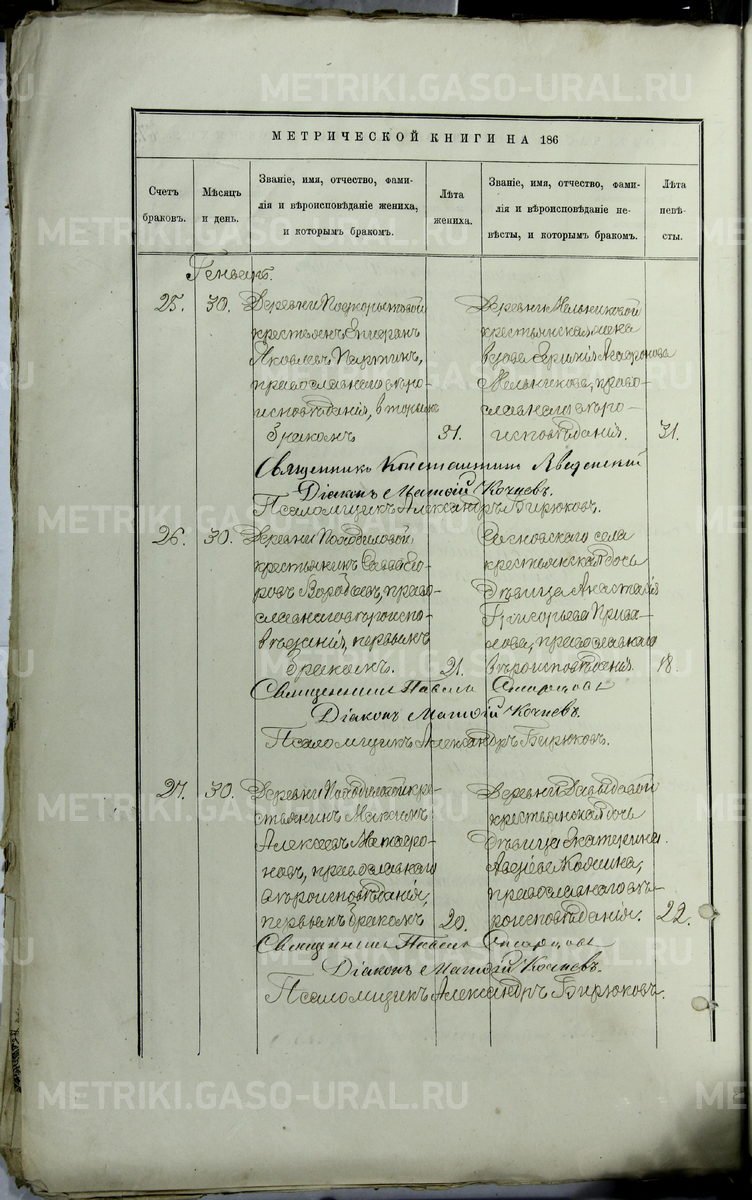 МЕТРИЧЕСКОЙ КНИГИ НА 186
Счетъ браковъ.
Мѣсяцъ и день.
Званіе, имя, отчество, фами-
лія и вѣроисповѣданіе жениха,
и которымъ бракомъ.
Лѣта жениха.
Званіе, имя, отчество, фами-
лія и вѣроисповѣданіе не-
вѣсты, и которымъ бракомъ.
Лѣта невѣ-
сты.
Генварь.
25. 30.
Деревни
крестьянъ
Яковлевъ
православнаго вѣро-
исповѣданія, вторымъ
бракомъ
31.
Деревни Мельниковой
крестьянская жена
вдова
Мельникова, право-
славнаго вѣро-
исповѣданія.
31.
Священникъ Константинъ
Діаконъ Матѳій Кочневъ.
Псаломщикъ Александръ Бирюковъ.
26. 30.
Деревни Походиловой
крестьянинъ Савва Его-
ровъ Воробьевъ, право-
славнаго вѣроиспо-
вѣданія, первымъ
бракомъ.
21.
Сосновскаго села
крестьянская дочь
дѣвица Анастасія
Григорьева Прива-
лова, православнаго
вѣроисповѣданія.
18.
Священникъ Павелъ
Діаконъ Матѳій Кочневъ.
Псаломщикъ Александръ Бирюковъ.
27. 30.
Деревни Походиловой кре-
стьянинъ Максимъ
Алексѣевъ
православнаго
вѣроисповѣданія,
первымъ бракомъ
20.
Деревни Давыдовой
крестьянская дочь
дѣвица Екатерина
православнаго вѣ-
роисповѣданія.
22.
Священникъ Павелъ
Діаконъ Матѳій Кочневъ.
Псаломщикъ Александръ Бирюковъ.
METRIKI.GASO-URAL.RU